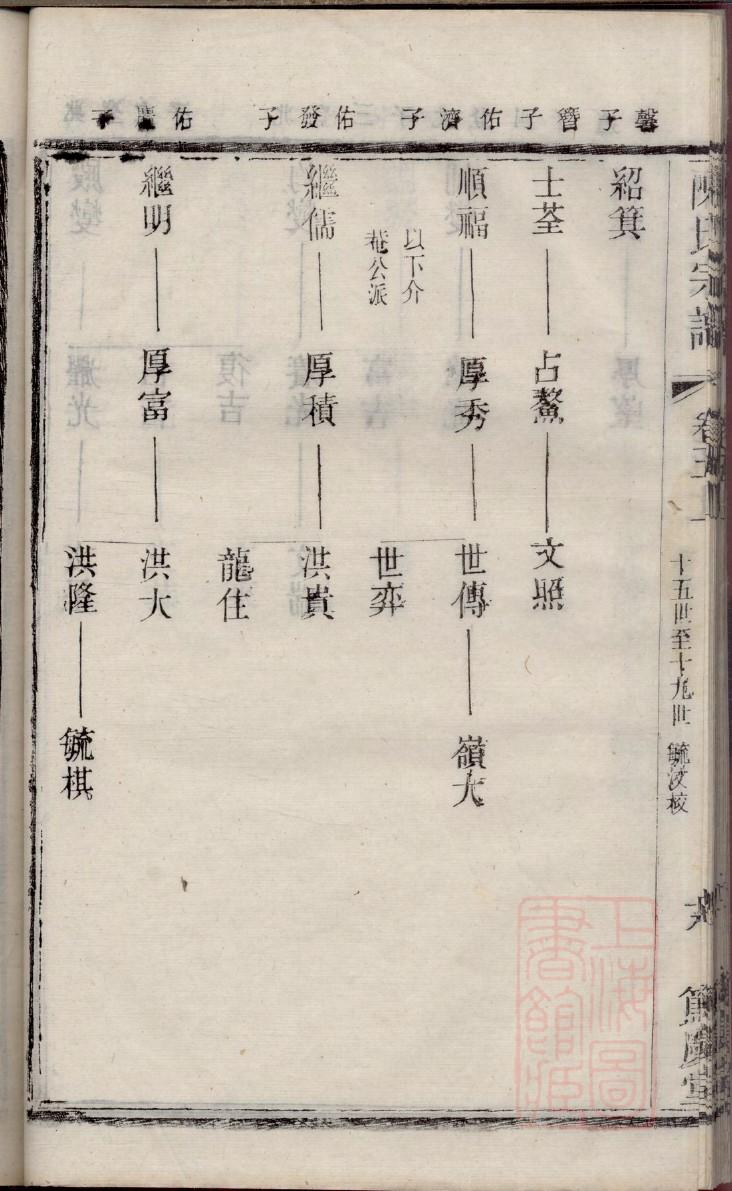 陳氏宗譜
卷五上
十五世至十九世 毓汶校
馨子
紹箕
簪子
士荃 占鰲 文照
佑濟子
順福 厚秀 世傳 嶺大
世弈
以下介
菴公派
佑發子
繼儒 厚積 洪貴
龍住
佑慶子
繼明 厚富 洪大
洪隆 毓棋
上海圖
書館